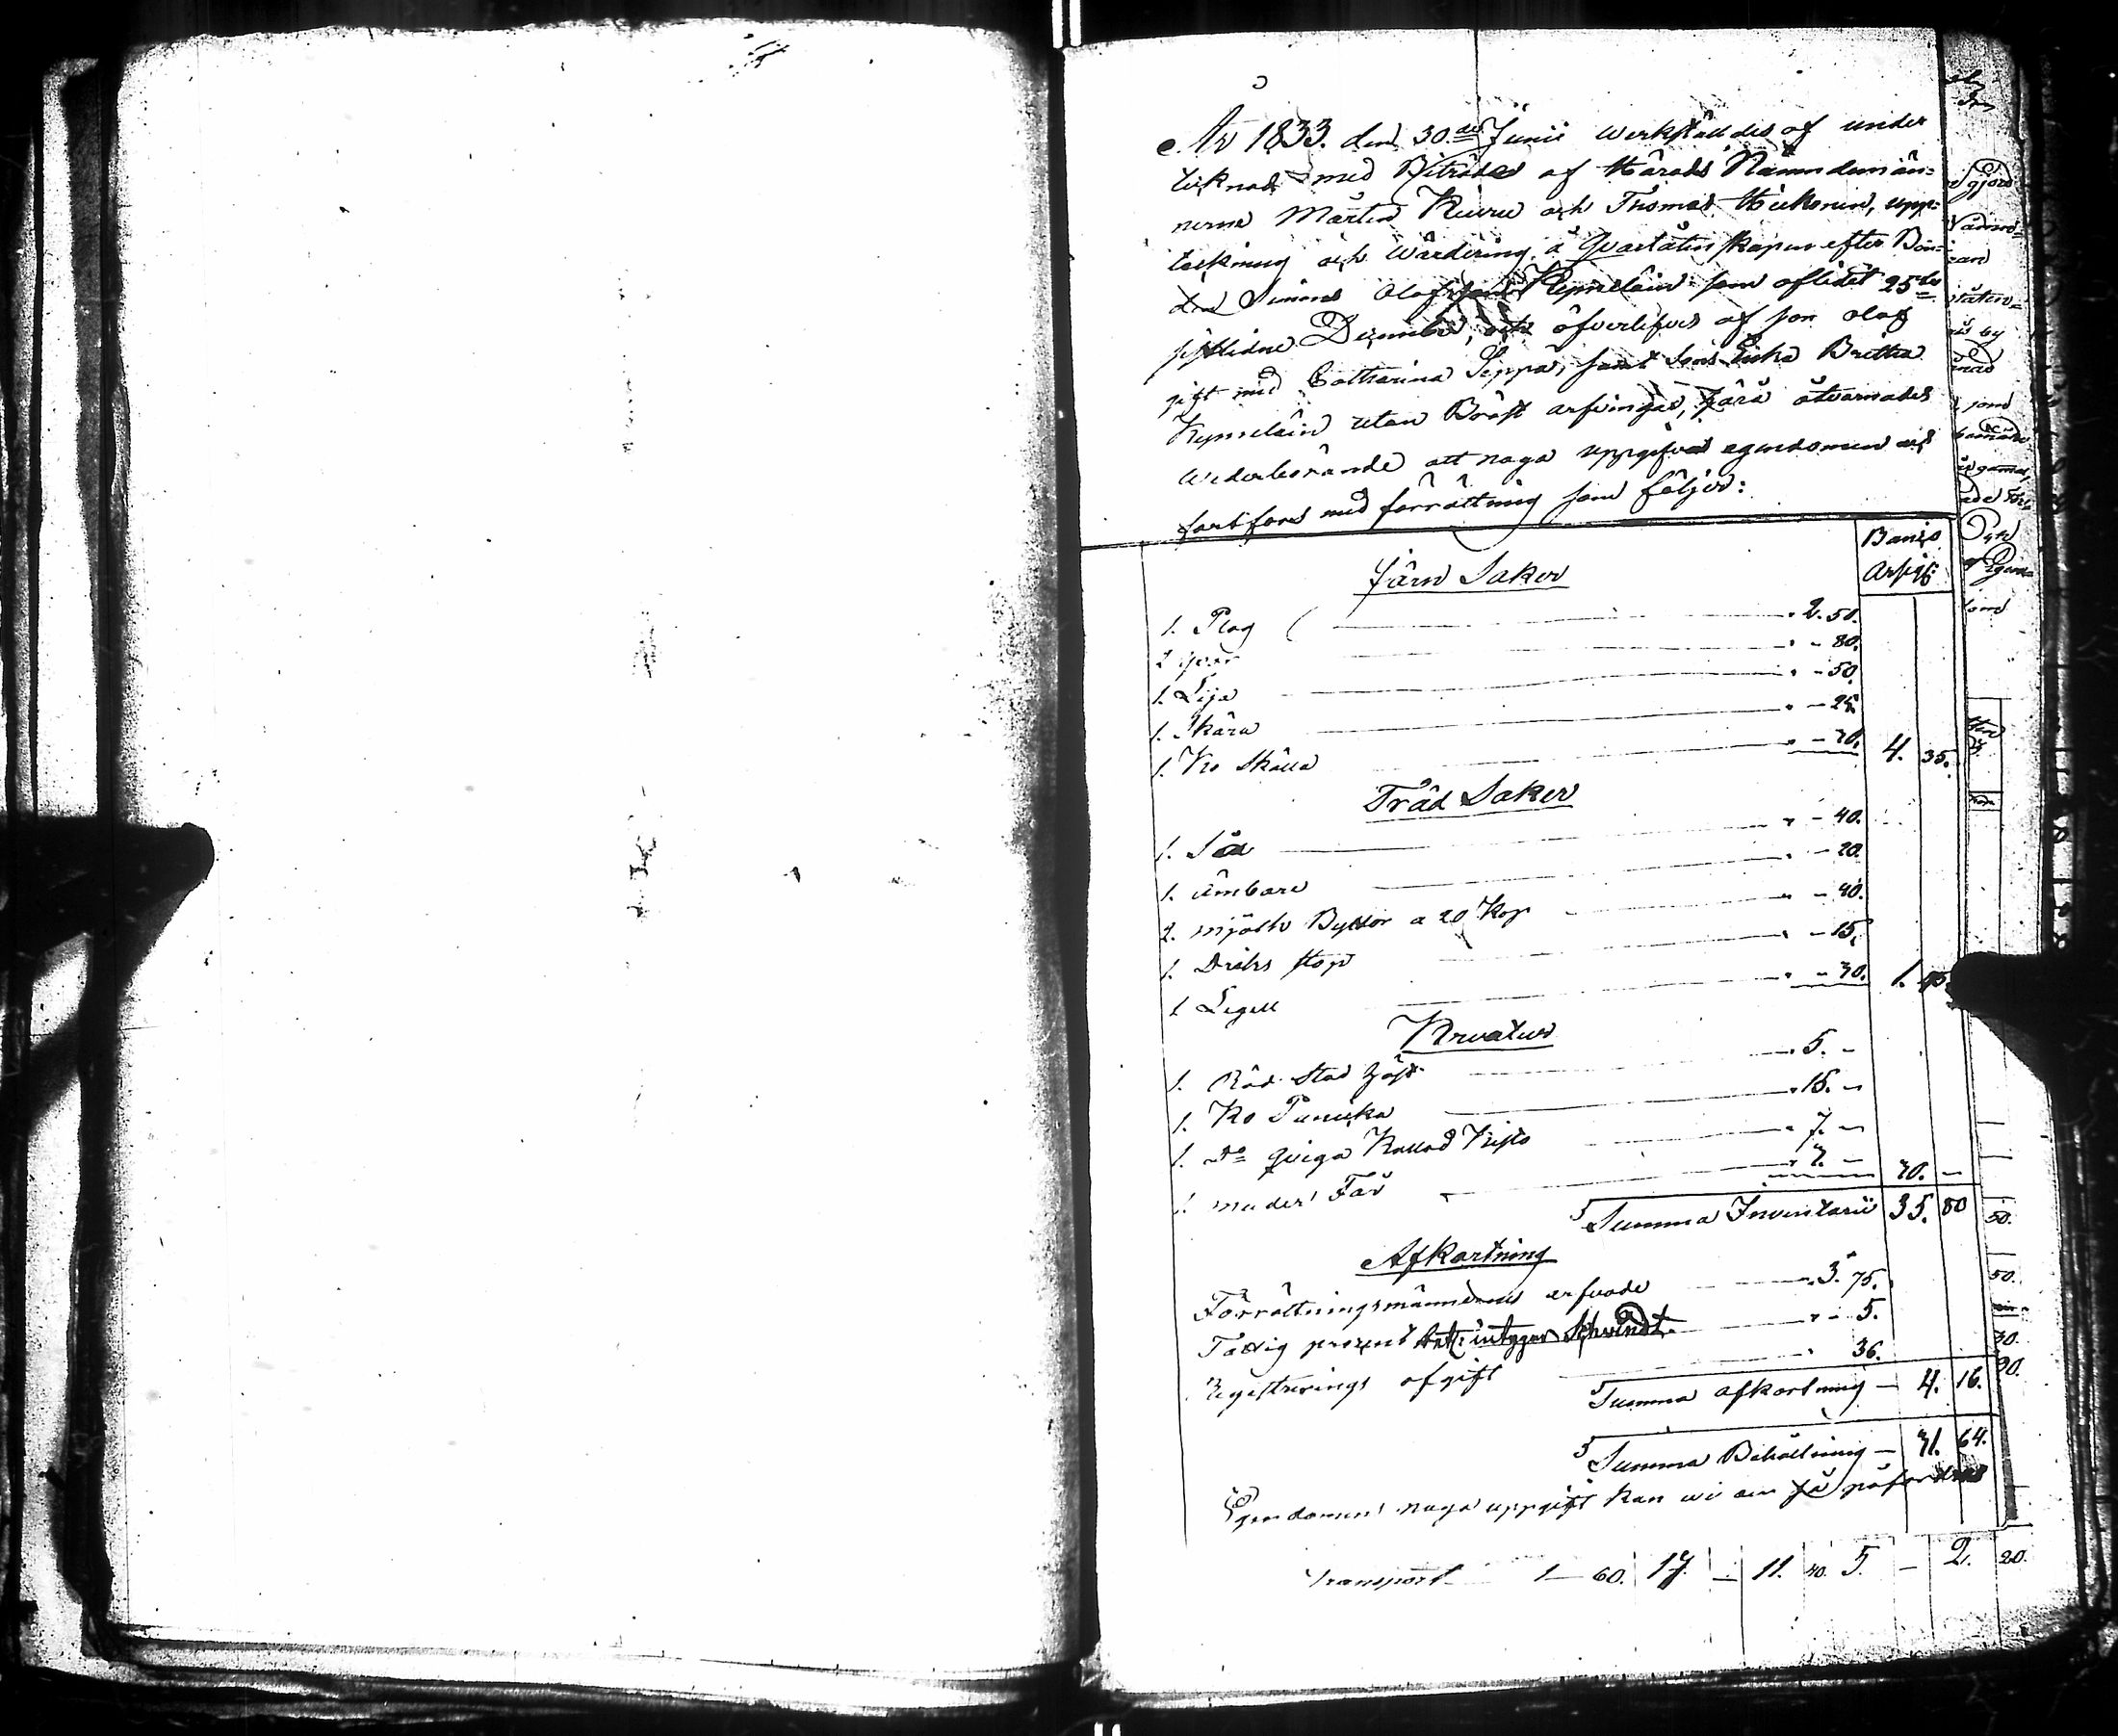 År 1833. den 30.de Junii werkstäldes af under
teknad med Biträde af Härads Nämndemän-
nerne Mårten Kuvru och Thomas Hickonen, upp-
tekning och Wärdering å Qvarlåtenskapen efter Bon-
den Simons Olofsson som aflidet 25de
sistledne December, och öfverlefves af son Olof
gift med Catharina Seppä, samt Enka Britta
utan Bröst arfvingar, Håra åtvarnades
Wederbörande att noga uppgifva egendomen och
fortfors med förrättning som följer:
Banco
Järn Saker
1. Plog 2. 50.
2 - 80.
1. Lija - 50.
1. Skära - 25.
1. Ko Skälla - 30. 4. 35.
Träd Saker
1. Så - 40.
1. Ämbare - 20.
2. mjölk Byttor a 20 Kop - 40.
1. Driks Stop - 15.
1 Legell - 30. 1. 45.
Kreatur
1. Röd Stod 5. -
1. Ko Punicka 15. -
1. Do qviga Kallad Kirjo 7. -
1. moder Får 3. - 30. -
Summa Inventarii 35. 80
Afkortning
Förrättningsmännernes arfvode 3. 75.
Fattig procent Att: intygar Schvindt. - 5.
Registrerings afgift 36.
Summa afkortning - 4. 16.
Summa Behållning - 31. 64.
Egendomens noga uppgift kan wi om så påfordras
Transport 1 - 60. 17. - 11. 40. 5. - 2. 20.